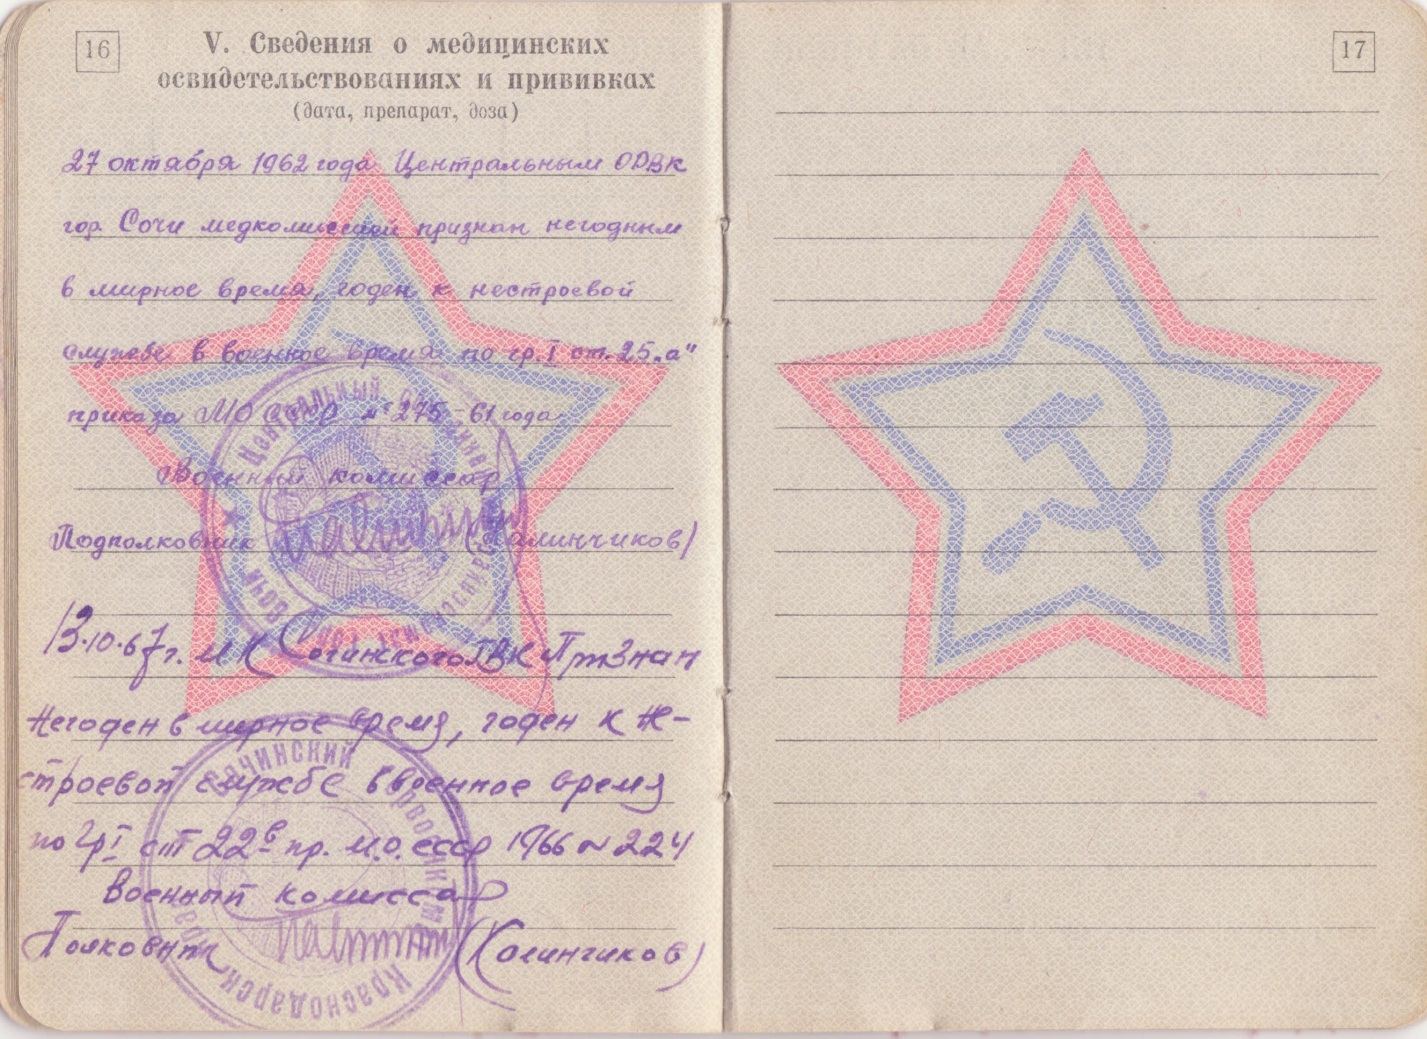 16
V. Сведения о медицинских
освидетельствованиях и прививках
(дата, препарат, доза)
27 октября 1962 года Центральным ОРВК
гор. Сочи медкомиссией признан негодным
в мирное время, годен к нестроевой
службе в военное время по гр. I ст. 25 „а"
приказа МО СССР № 275-61 года
Военный комиссар
Подполковник (Калинчиков)
13.10.67г. МК Сочинского ГВК признан
Негоден в мирное время, годен к не-
строевой службе в военное время
по гр I ст 22в пр. М.О. ССР 1966 № 224
Военный комиссар
Полковник (Калинчиков)
Центральный
Сочи
Сочинский
Краснодарск
17